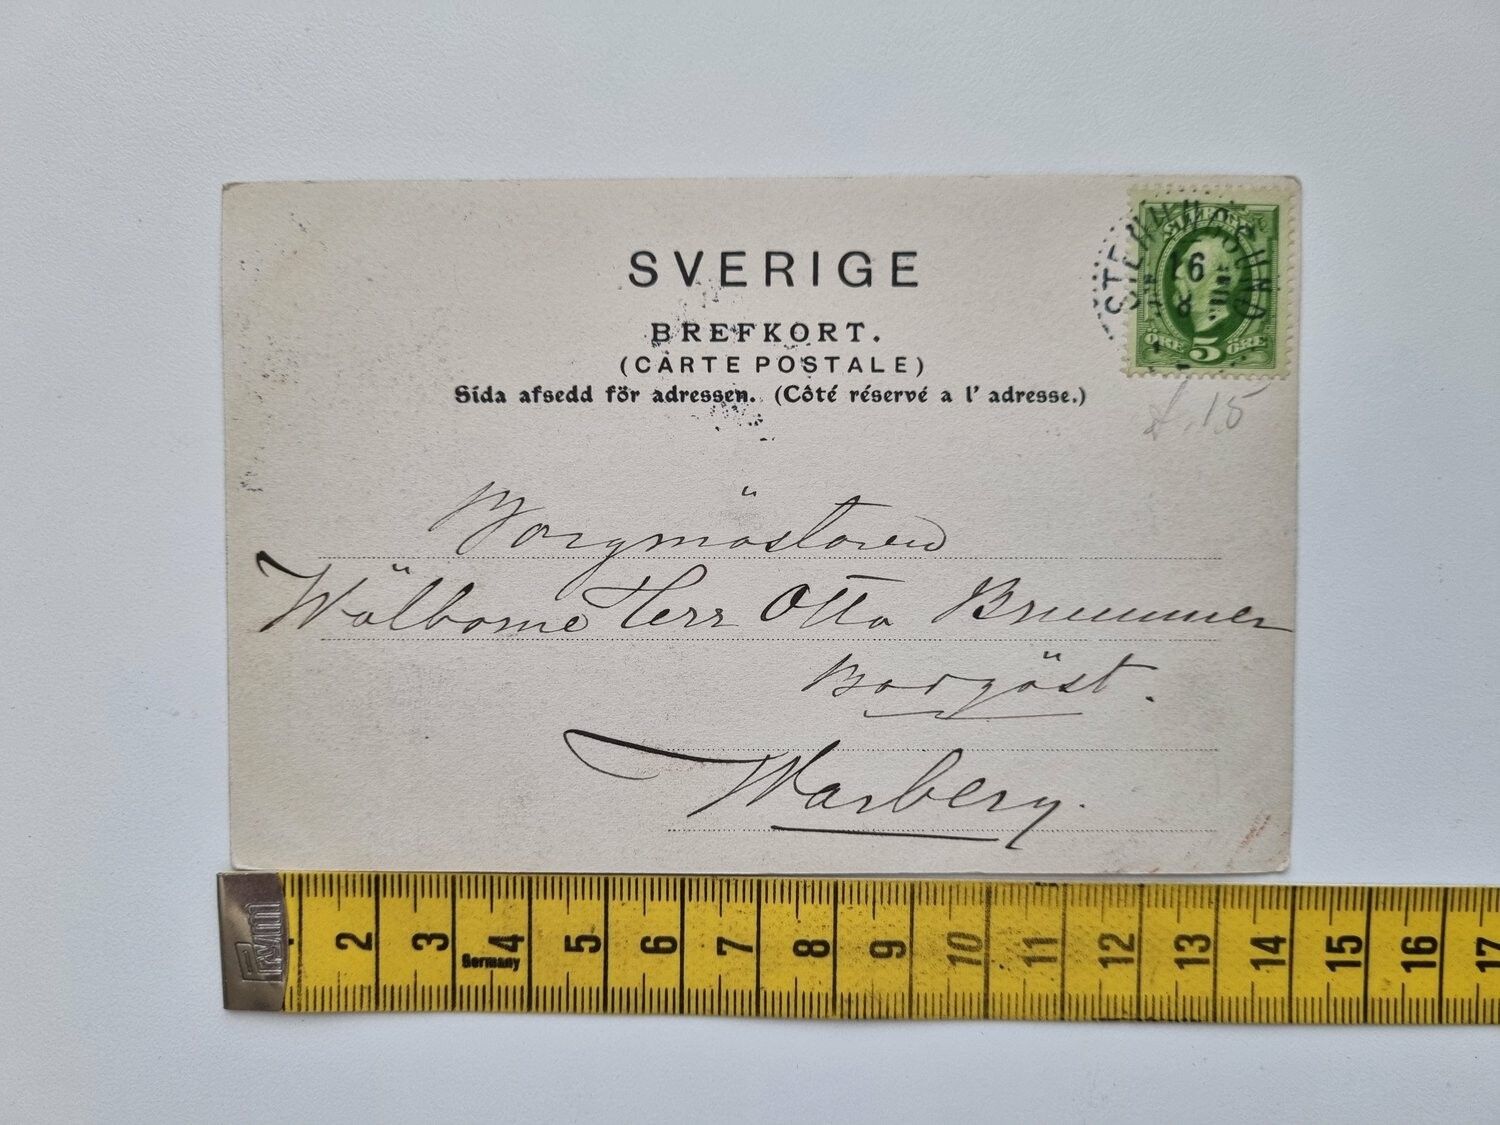 SVERIGE
BREFKORT.
(CARTE POSTALE)
Sida afsedd för adressen. (Côté réservé a l' adresse.)
ÖRE 5 ÖRE
16
8
Borgmästaren
Wälborne Herr Otto Brummer
Warberg.
PYM
2 3 4 5 6 7 8 9 10 11 12 13 14 15 16 17
Germany